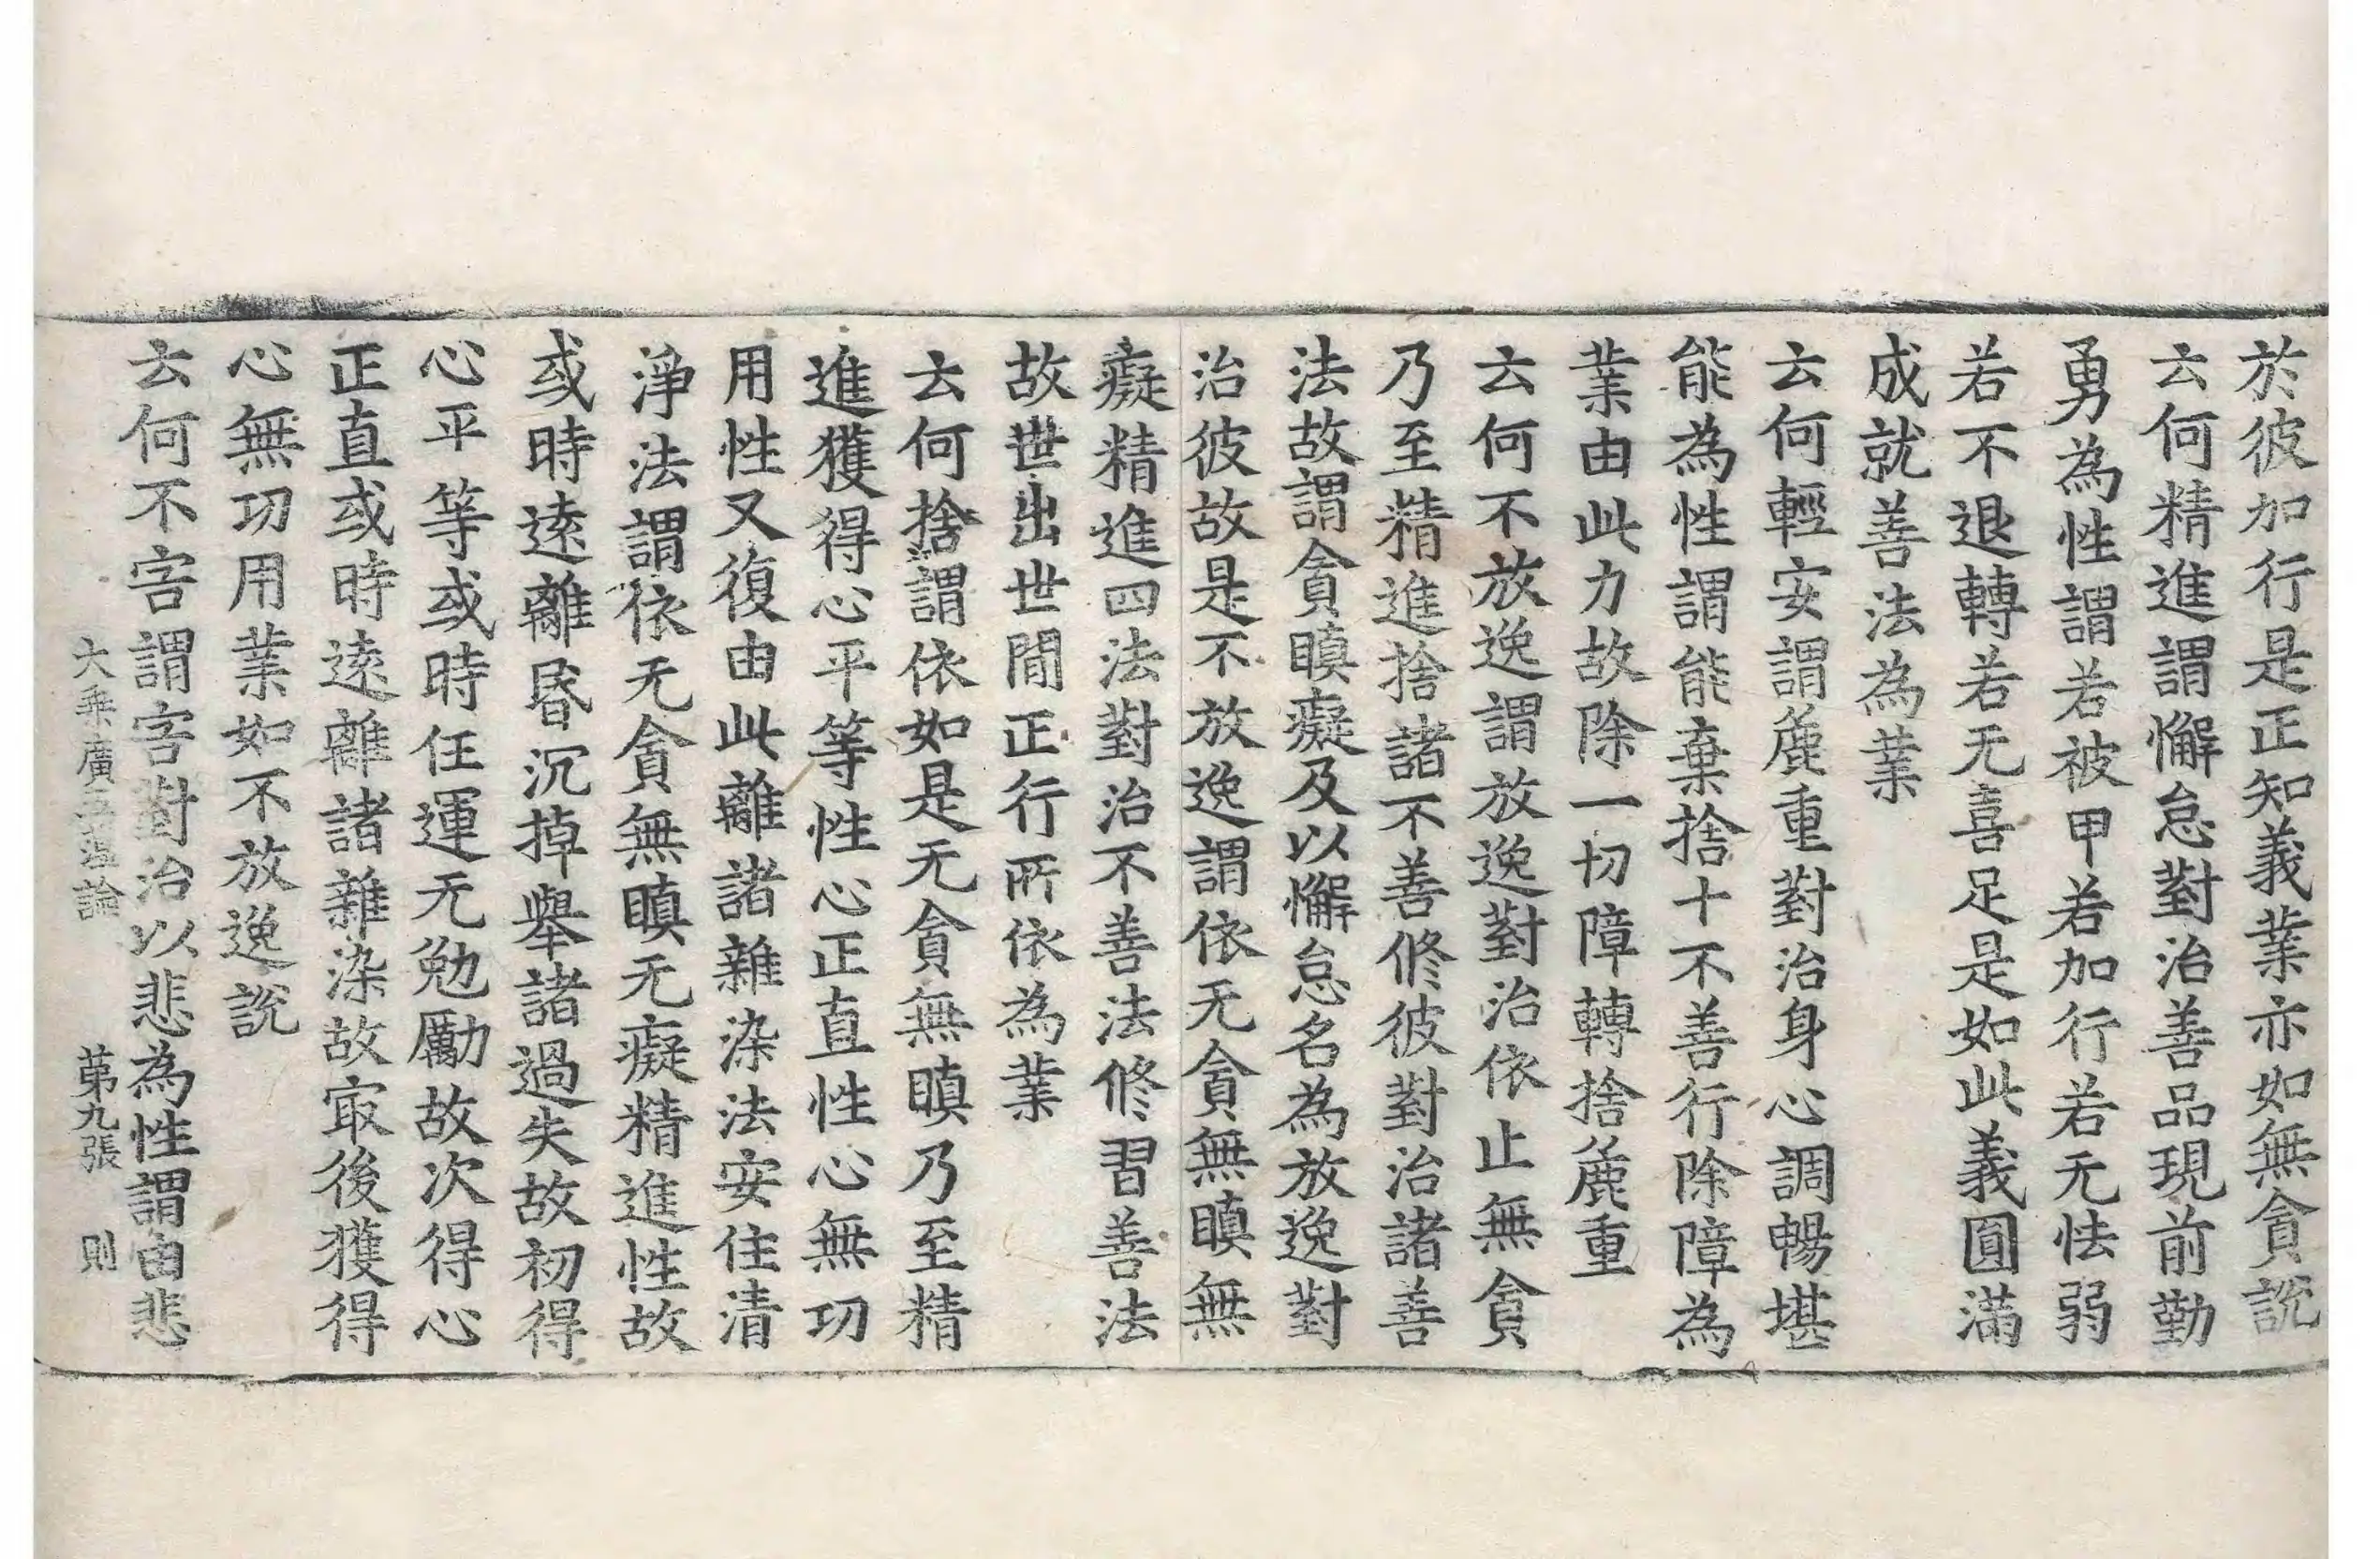 於彼加行是正知義業亦如無貪說
云何精進謂懈怠對治善品現前勤
勇為性謂若被甲若加行若无怯弱
若不退轉若无喜足是如此義圓滿
成就善法為業
云何輕安謂麁重對治身心調暢堪
能為性謂能棄捨十不善行除障為
業由此力故除一切障轉捨麁重
云何不放逸謂放逸對治依止無貪
乃至精進捨諸不善修彼對治諸善
法故謂貪瞋癡及以懈怠名為放逸對
治彼故是不放逸謂依无貪無瞋無
癡精進四法對治不善法修習善法
故世出世間正行所依為業
云何捨謂依如是无貪無瞋乃至精
進獲得心平等性心正直性心無功
用性又復由此離諸雜染法安住清
淨法謂依无貪無瞋无癡精進性故
或時遠離昏沉掉舉諸過失故初得
心平等或時任運无勉勵故次得心
正直或時遠離諸雜染故冣後獲得
心無功用業如不放逸說
云何不害謂害對治以悲為性謂由悲
大乘廣五蘊論 苐九張 則